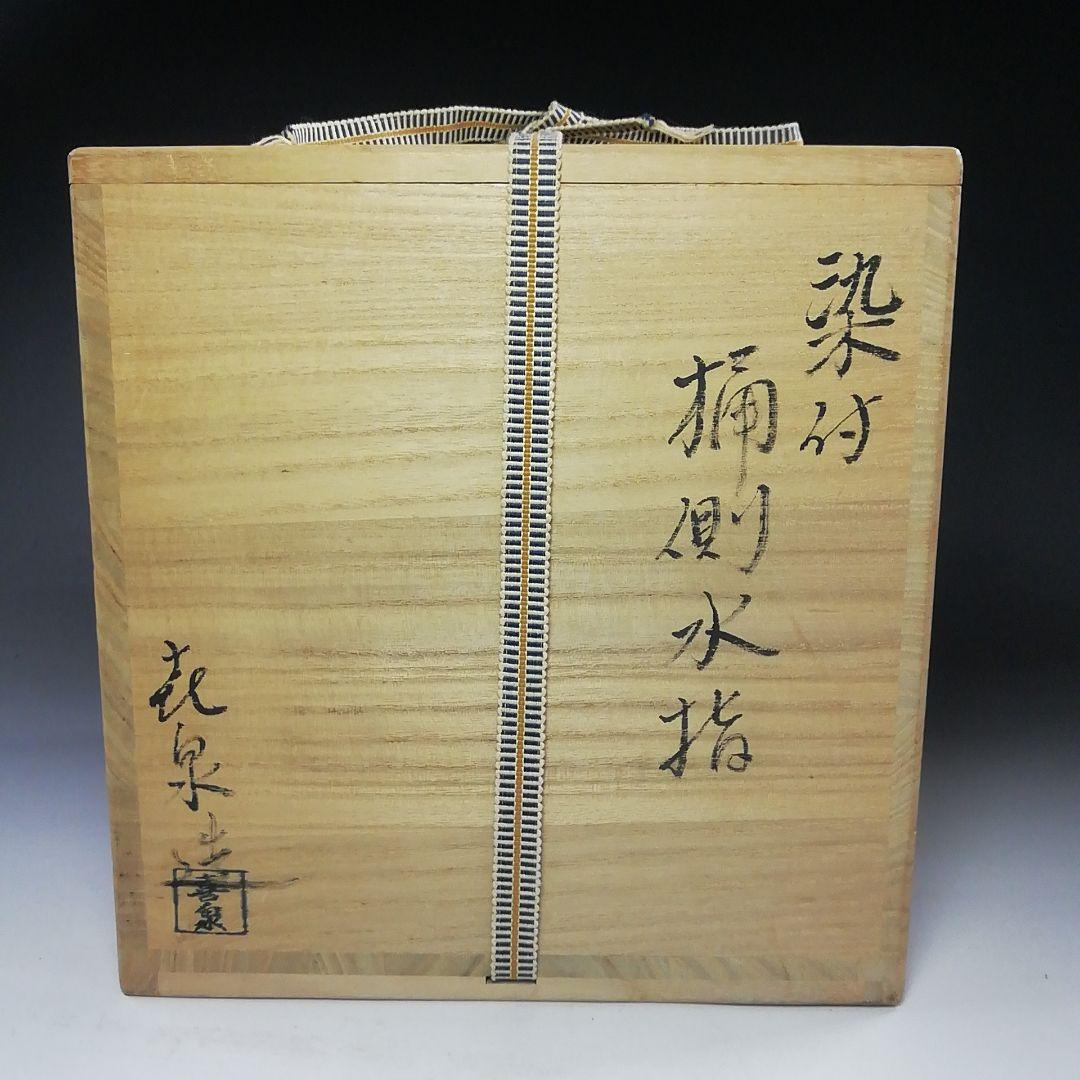 染付
桶側水指
㐂泉造
喜泉